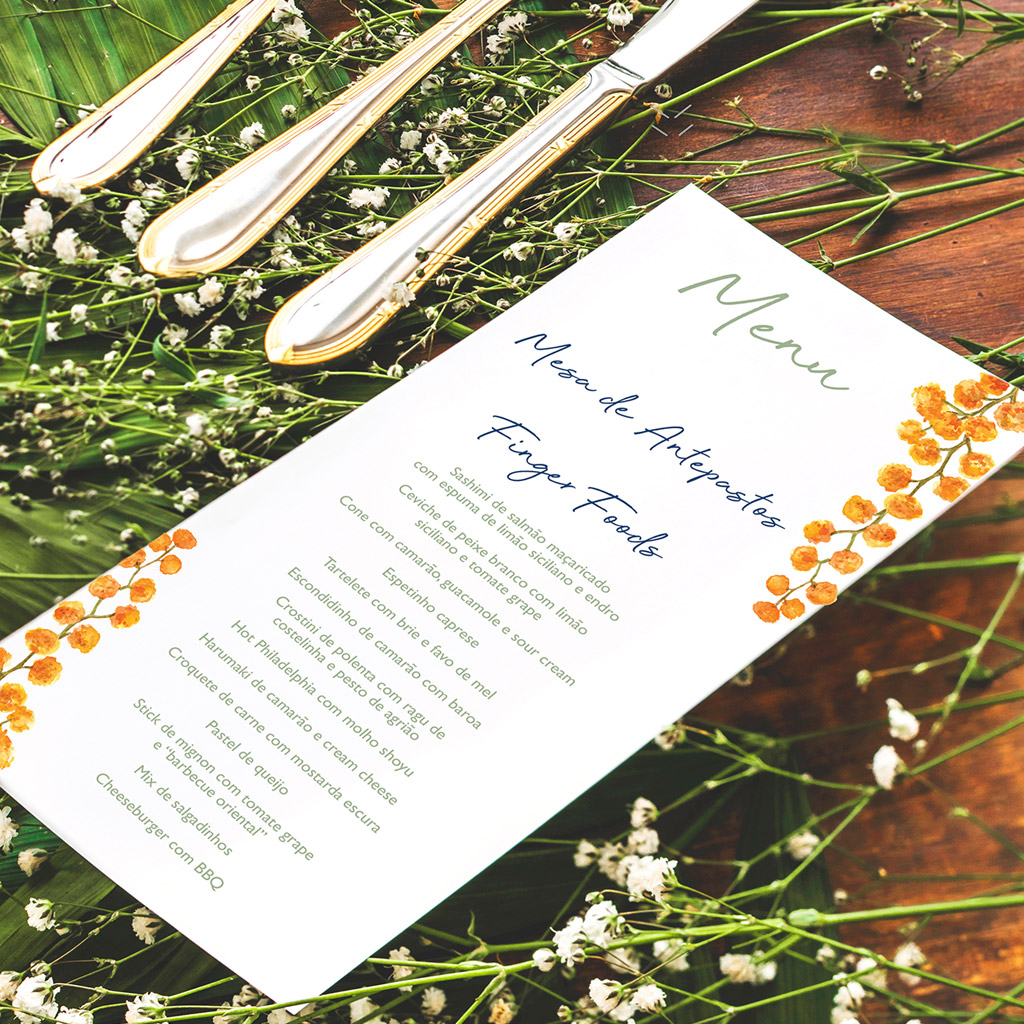 Menu
Mesa de Antepastos
Finger Foods
Sashimi de salmão maçaricado
com espuma de limão siciliano e endro
Ceviche de peixe branco com limão
siciliano e tomate grape
Cone com camarão,guacamole e sour cream
Espetinho caprese
Tartelete com brie e favo de mel
Escondidinho de camarão com baroa
Crostini de polenta com ragu de
costelinha e pesto de agrião
Hot Philadelphia com molho shoyu
Harumaki de camarão e cream cheese
Croquete de carne com mostarda escura
Pastel de queijo
Stick de mignon com tomate grape
e "barbecue oriental"
Mix de salgadinhos
Cheeseburger com BBQ